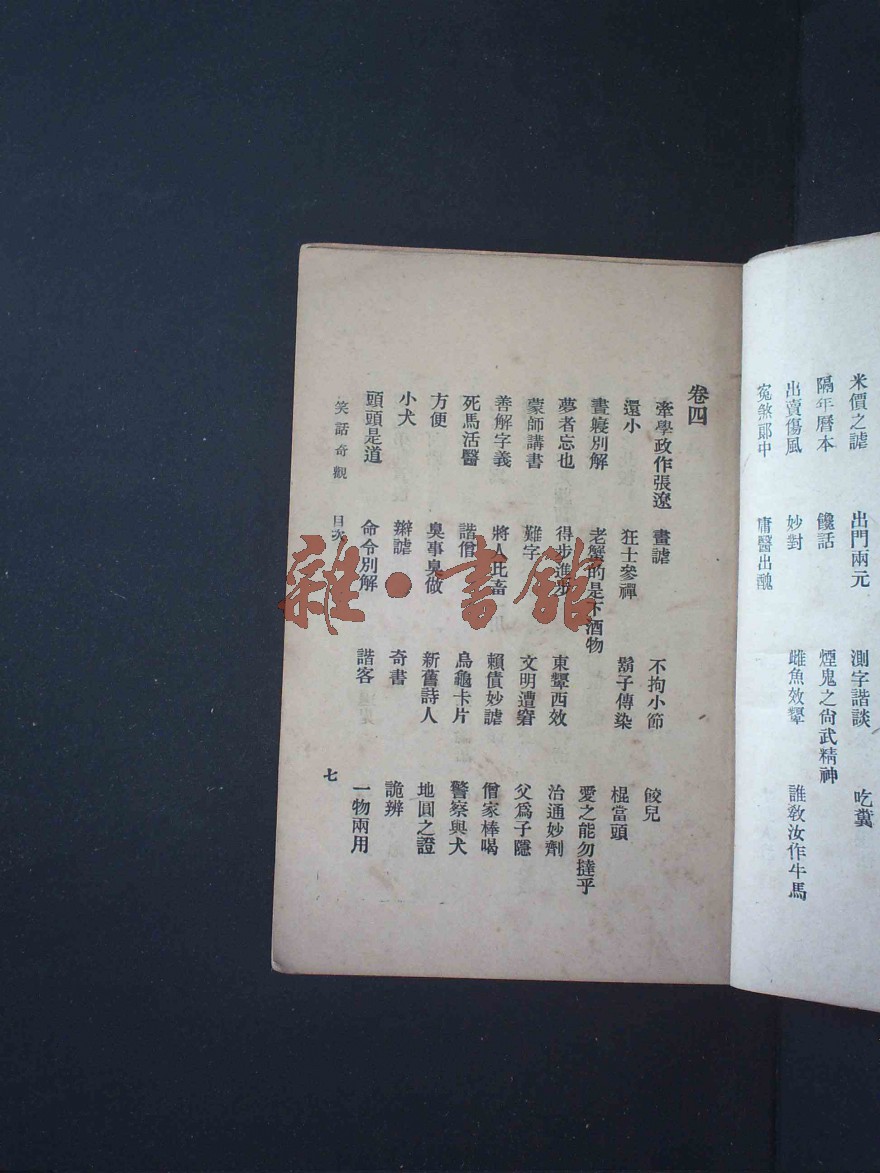 米價之謔 出門兩元 測字諧談 吃糞
隔年曆本 饞話 煙鬼之尙武精神
出賣傷風 妙對 雌魚效顰 誰敎汝作牛馬
冤煞郞中 庸醫出醜
卷四
牽學政作張遼 畫謔 不拘小節 餃兒
還小 狂士參禪 鬍子傳染 棍當頭
晝寢別解 老蟹的是下酒物 愛之能勿撻乎
夢者忘也 得步進步 東顰西效 治通妙劑
蒙師講書 難字 文明遭窘 父爲子隱
善解字義 將人比畜 賴債妙謔 僧家棒喝
死馬活醫 諧僧 烏龜卡片 警察與犬
方便 臭事臭做 新舊詩人 地圓之證
小犬 辯謔 奇書 詭辨
頭頭是道 命令別解 諧客 一物兩用
笑話奇觀 目次 七
雜·書館